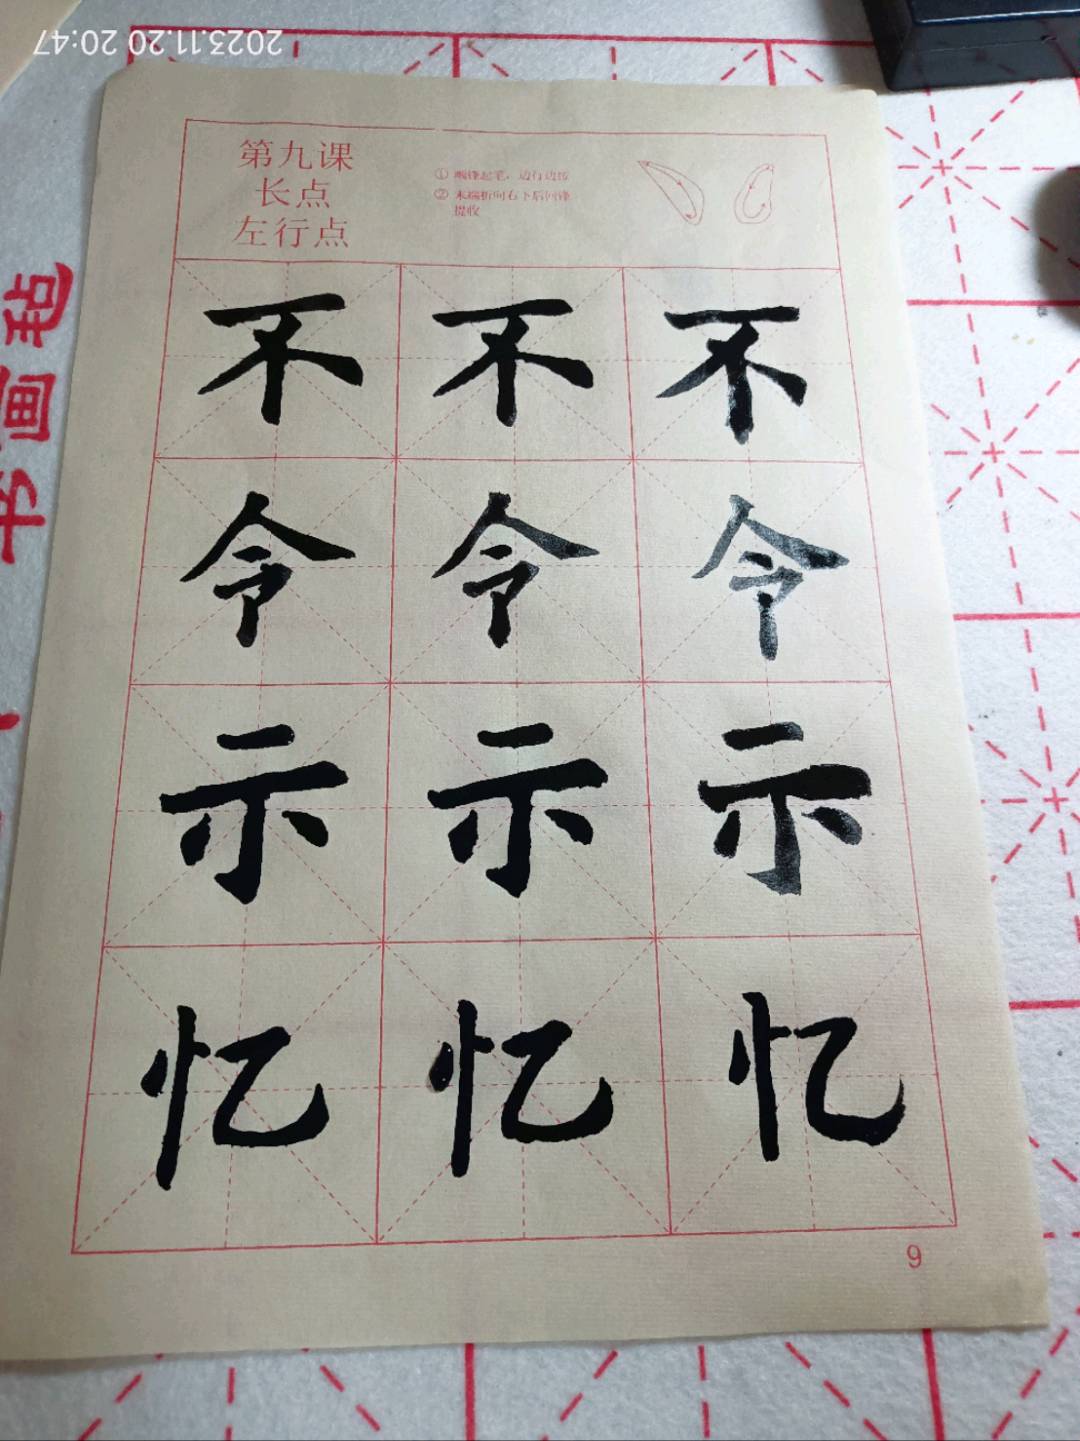 2023.11.20 20:47
第九课
长点
左行点
① 顺锋起笔，边行边按
② 末端折向右下后回锋
提收
不不不
令令令
示示示
忆忆忆
9
书画毡